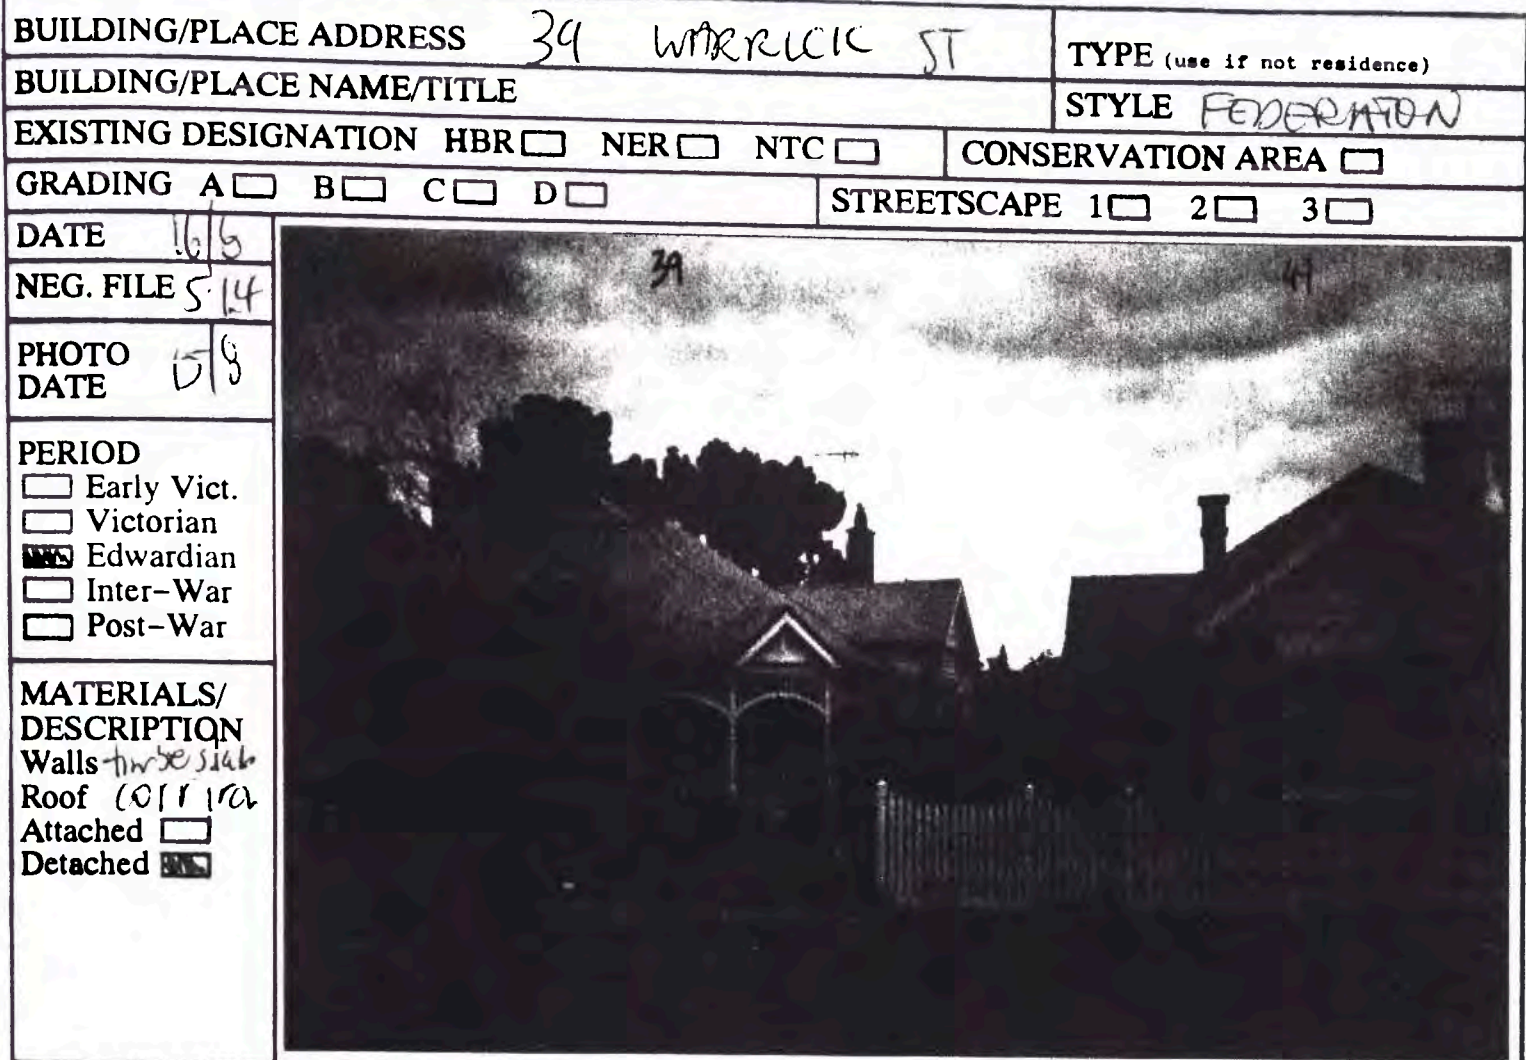 BUILDING/PLACE ADDRESS 39 WARRICK ST
TYPE (use if not residence)
BUILDING/PLACE NAME/TITLE
STYLE FEDERATION
EXISTING DESIGNATION HBR NER NTC
CONSERVATION AREA
GRADING A B C D
STREETSCAPE 1 2 3
DATE
NEG. FILE 5.14
PHOTO
DATE
39
41
PERIOD
Early Vict.
Victorian
Edwardian
Inter-War
Post-War
MATERIALS/
DESCRIPTION
Walls
Roof
Attached
Detached